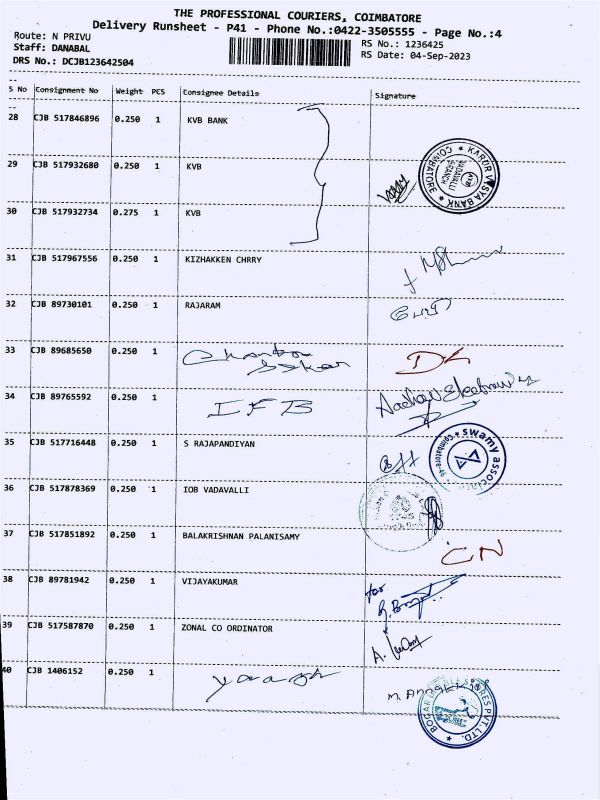 THE PROFESSIONAL COURIERS, COIMBATORE
Delivery Runsheet - P41 - Phone No.:0422-3505555 - Page No.:4
Route: N PRIVU RS No.: 1236425
Staff: DANABAL RS Date: 04-Sep-2023
DRS No.: DCJB123642504
S No Consignment No Weight PCS Consignee Details Signature
28 CJB 517846896 0.250 1 KVB BANK
29 CJB 517932680 0.250 1 KVB
KARUR VYSYA BANK
VADAVALLI
BRANCH
KVB
COIMBATORE
30 CJB 517932734 0.275 1 KVB
31 CJB 517967556 0.250 1 KIZHAKKEN CHRRY
32 CJB 89730101 0.250 1 RAJARAM
33 CJB 89685650 0.250 1
34 CJB 89765592 0.250 1 IFB
35 CJB 517716448 0.250 1 S RAJAPANDIYAN
swamy associates
Coimbatore
36 CJB 517878369 0.250 1 IOB VADAVALLI
37 CJB 517851892 0.250 1 BALAKRISHNAN PALANISAMY CN
38 CJB 89781942 0.250 1 VIJAYKUMAR for
39 CJB 517587870 0.250 1 ZONAL CO ORDINATOR
40 CJB 1406152 0.250 1
PVT. LTD.